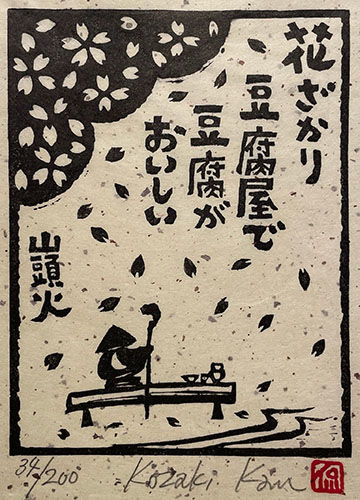 花ざかり
豆腐屋で
豆腐が
おいしい
山頭火
34/200
Kozaki Kan
侃